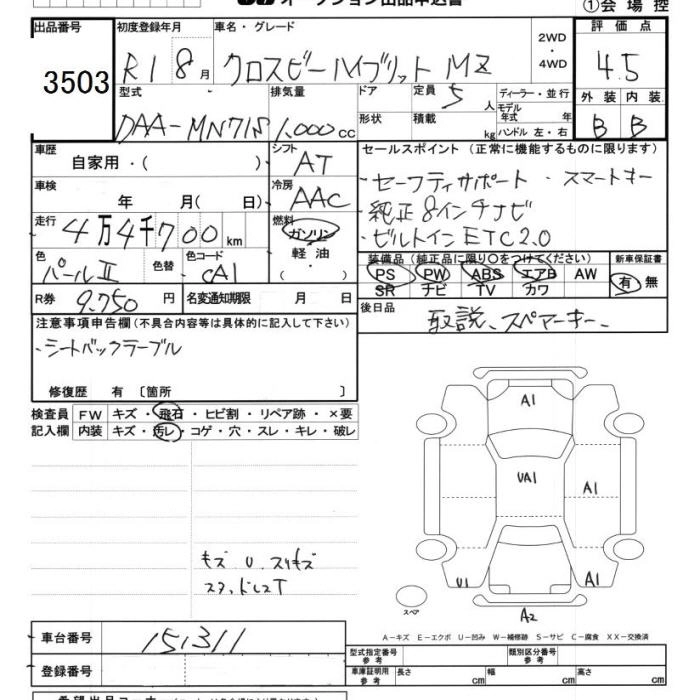 オークション出品申込書
①会場控
出品番号 3503
初度登録年月 R1 8月
車名・グレード クロスビーハイブリット MZ
2WD・4WD
評価点 4.5
型式 DAA-MN71S
排気量 1,000cc
ドア 形状
定員 5人
積載 kg
ディーラー・並行
モデル年式 年式
ハンドル 左・右
外装 内装
B B
車歴 自家用・( )
シフト AT
セールスポイント (正常に機能するものに限ります)
・セーフティサポート ・スマートキー
・純正8インチナビ
・ビルトインETC2.0
車検 年 月( 日)
冷房 AAC
走行 4万4千700km
燃料 ガソリン・軽油・( )
色 パールⅡ
色替
色コード CA1
装備品 (純正品に限り○をつけてください)
PS PW ABS エアB AW
SR ナビ TV カワ
新車保証書 有 無
R券 9,750円
名変通知期限 月 日
後日品 取説、スペアーキー、
注意事項申告欄 (不具合内容等は具体的に記入して下さい)
・シートバックテーブル
修復歴 有 〔箇所 〕
検査員記入欄
FW キズ・飛石・ヒビ割・リペア跡・×要
内装 キズ・汚レ・コゲ・穴・スレ・キレ・破レ
キズ U スリキズ
A1
UA1
A1
U1
A1
A2
スペア
A-キズ E-エクボ U-凹み W-補修跡 S-サビ C-腐食 XX-交換済
車台番号 151311
登録番号
型式指定番号 参考
類別区分番号 参考
車庫証明用 参考 長さ cm 幅 cm 高さ cm